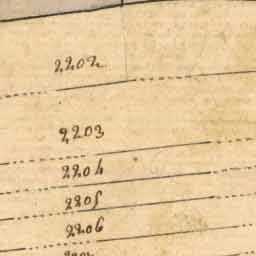 2202
2203
2204
2205
2206